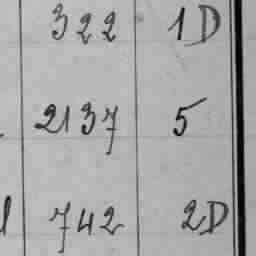 322 1D
2137 5
742 2D